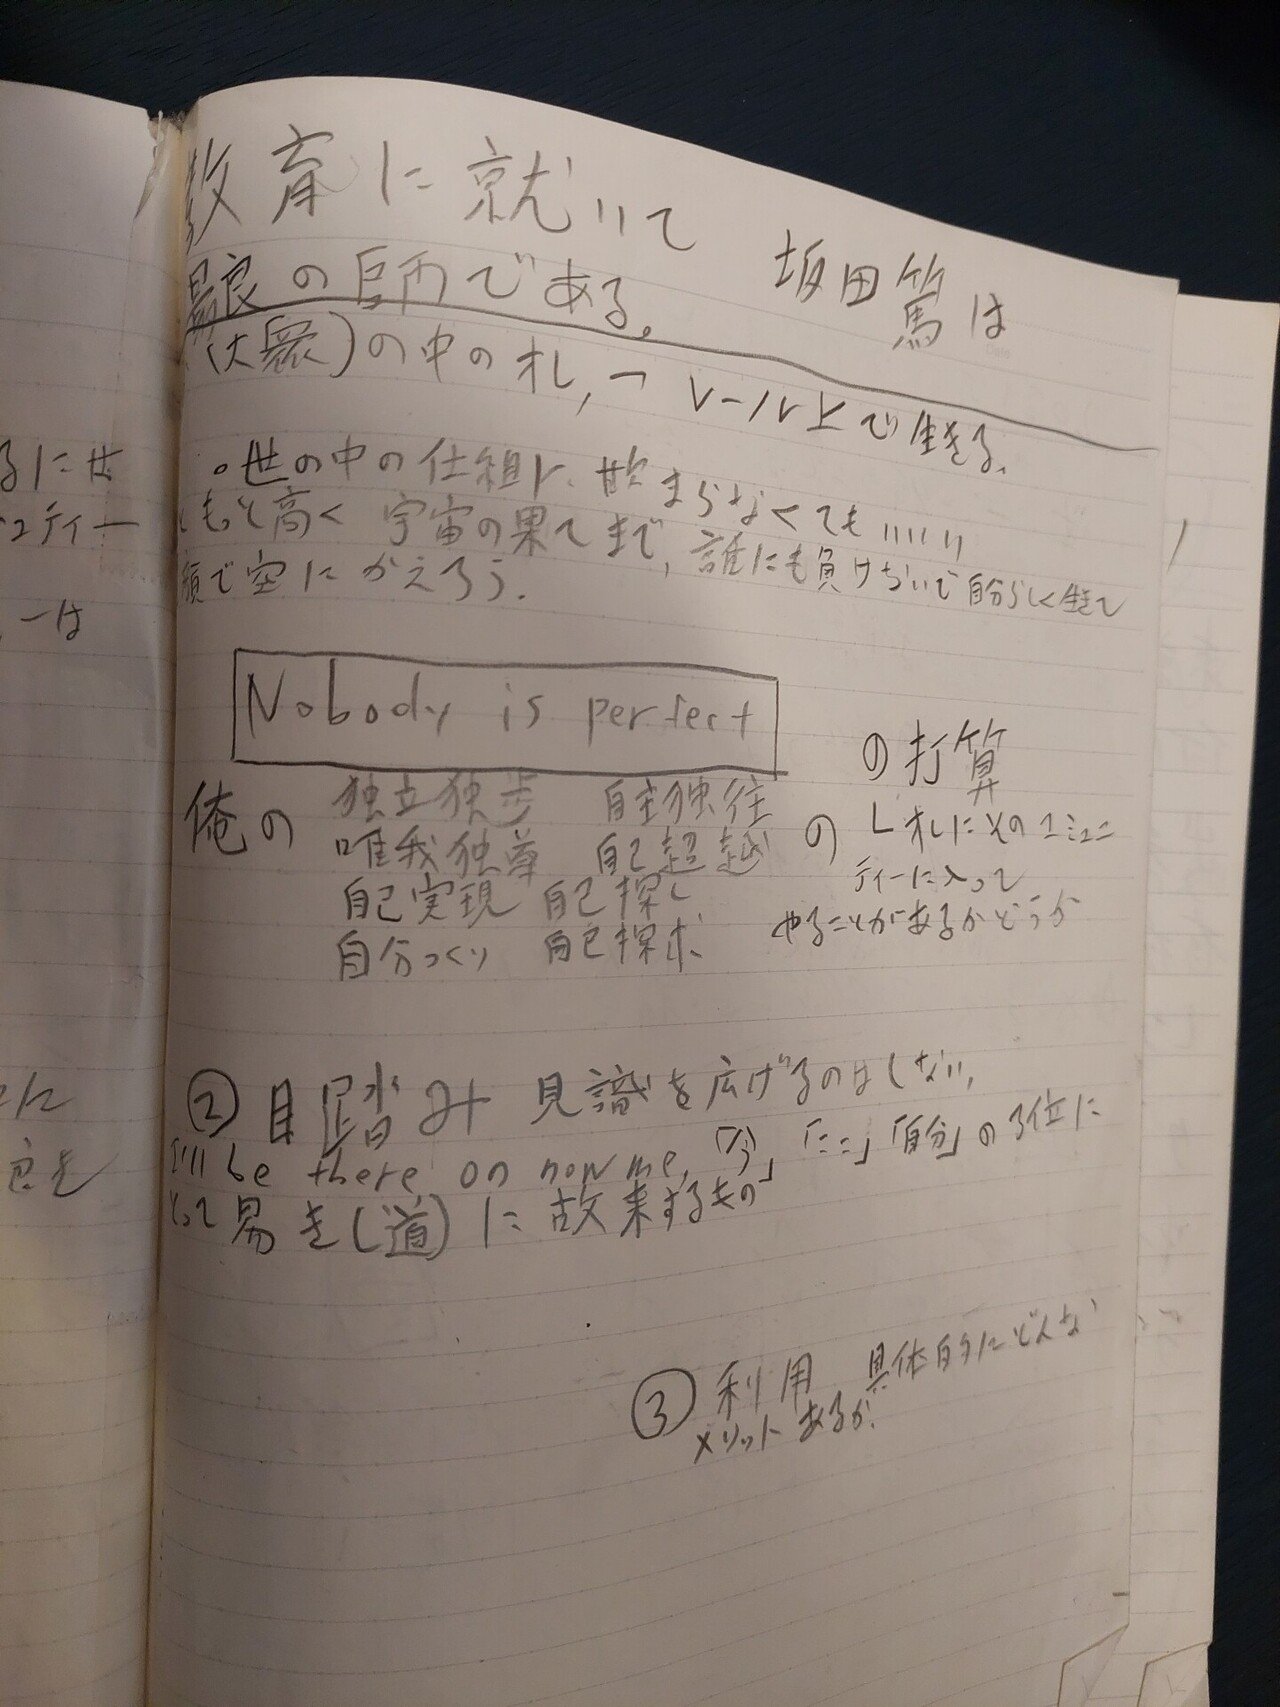 教育に就いて 坂田篤は
の師である。
(大衆)の中のオレ, レール上で生きる。
。世の中の仕組に、嵌まらなくてもいいい
もっと高く 宇宙の果てまで, 誰にも負けないで自分らしく生きて
顔で空にかえろう.
Nobody is perfect
の打算
俺の 独立独歩 自主独往
唯我独尊 自己超越 の
自己実現 自己探し
自分つくり 自己探求
オレにそのコミュニ
ティーに入って
やることがあるかどうか
② 目踏み 見識を広げるのはしない,
I'll be there on now me, 「今」「ここ」「自分」の3位に
とって易き(道)に故来するもの
③ 利用 具体的にどんな
メリットあるか.
るには
ュティー
ーは